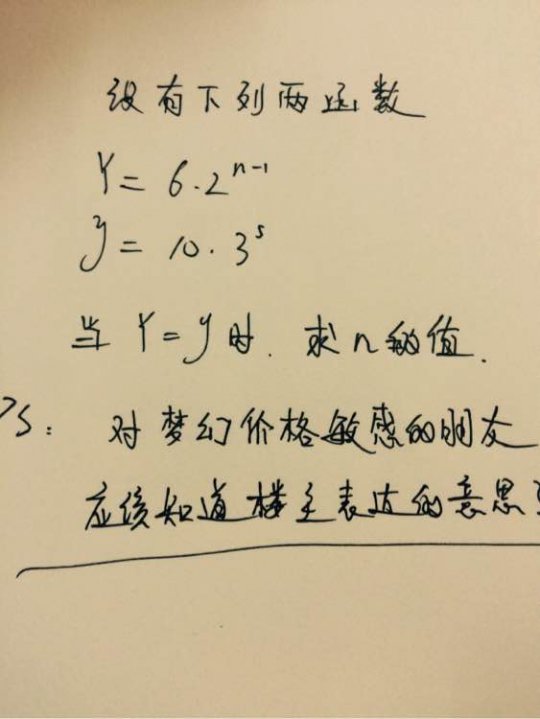 设有下列两函数
Y = 6·2ⁿ⁻¹
y = 10·3⁵
当 Y = y 时. 求 n 的值.
PS: 对梦幻价格敏感的朋友
应该知道楼主表达的意思